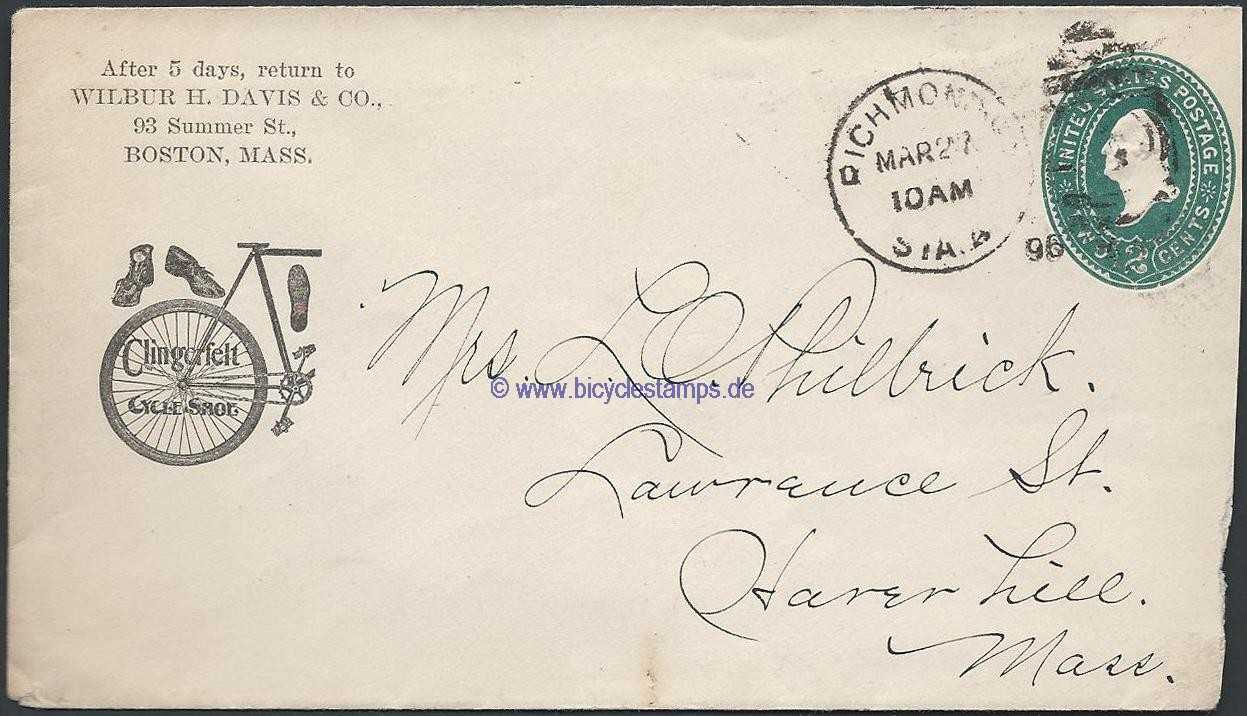 After 5 days, return to
WILBUR H. DAVIS & CO.,
93 Summer St.,
BOSTON, MASS.
RICHMOND
MAR 27
10 AM
STA.
96
UNITED STATES POSTAGE
2 CENTS
Clingerfelt
CYCLE SHOE
Mrs. L. C. Philbrick.
© www.bicyclestamps.de
Lawrence St.
Haverhill.
Mass.